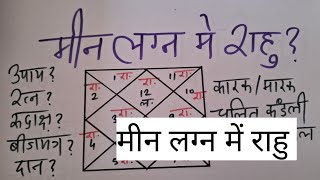 मीन लग्न मे राहु?
उपाय?
रत्न?
रुद्राक्ष?
बीजमंत्र?
दान?
1 रा:
रा:
12
ल:
11 रा:
रा:
2
10
रा:
4
कारक/मारक
चलित कुंडली
मीन लग्न में राहु